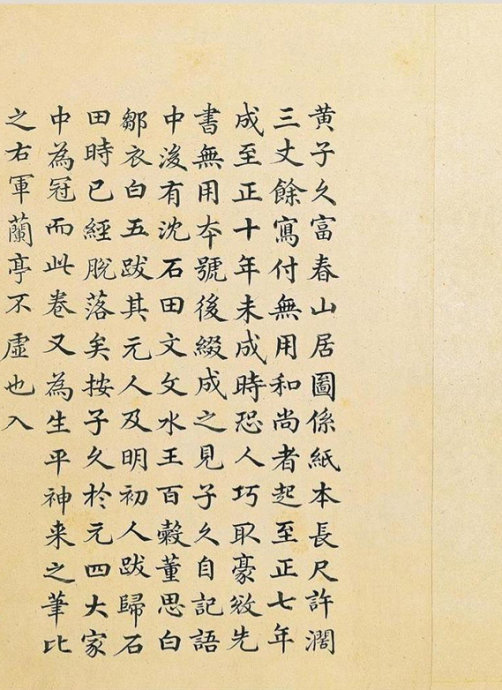 黄子久富春山居圖係紙本長尺許濶
三丈餘寫付無用和尚者起至正七年
成至正十年未成時恐人巧取豪敓先
書無用夲號後綴成之見子久自記語
中後有沈石田文文水王百穀董思白
鄒衣白五跋其元人及明初人跋歸石
田時已經脫落矣按子久於元四大家
中為冠而此卷又為生平神来之筆比
之右軍蘭亭不虛也入